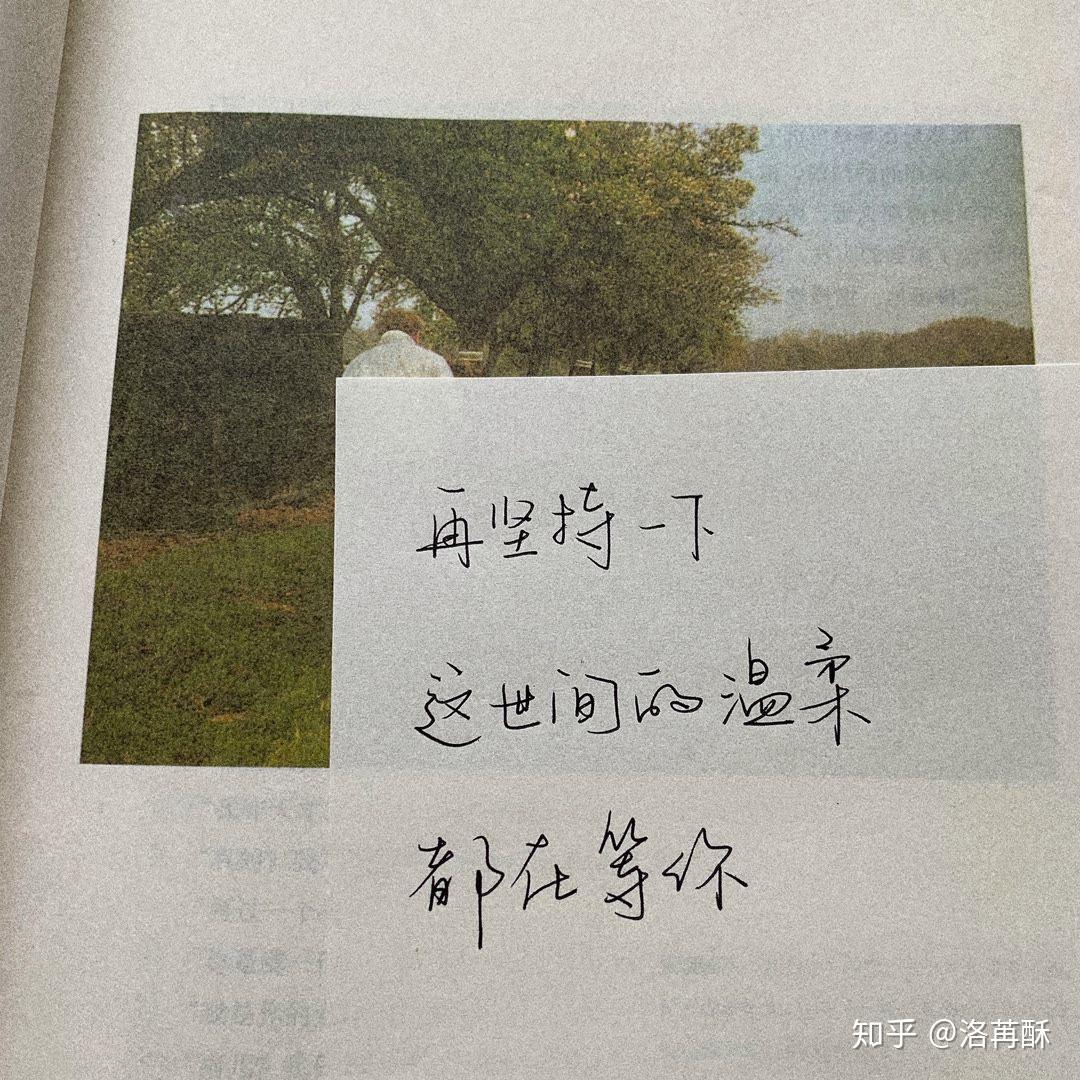 再坚持一下
这世间的温柔
都在等你
知乎 @洛苒酥